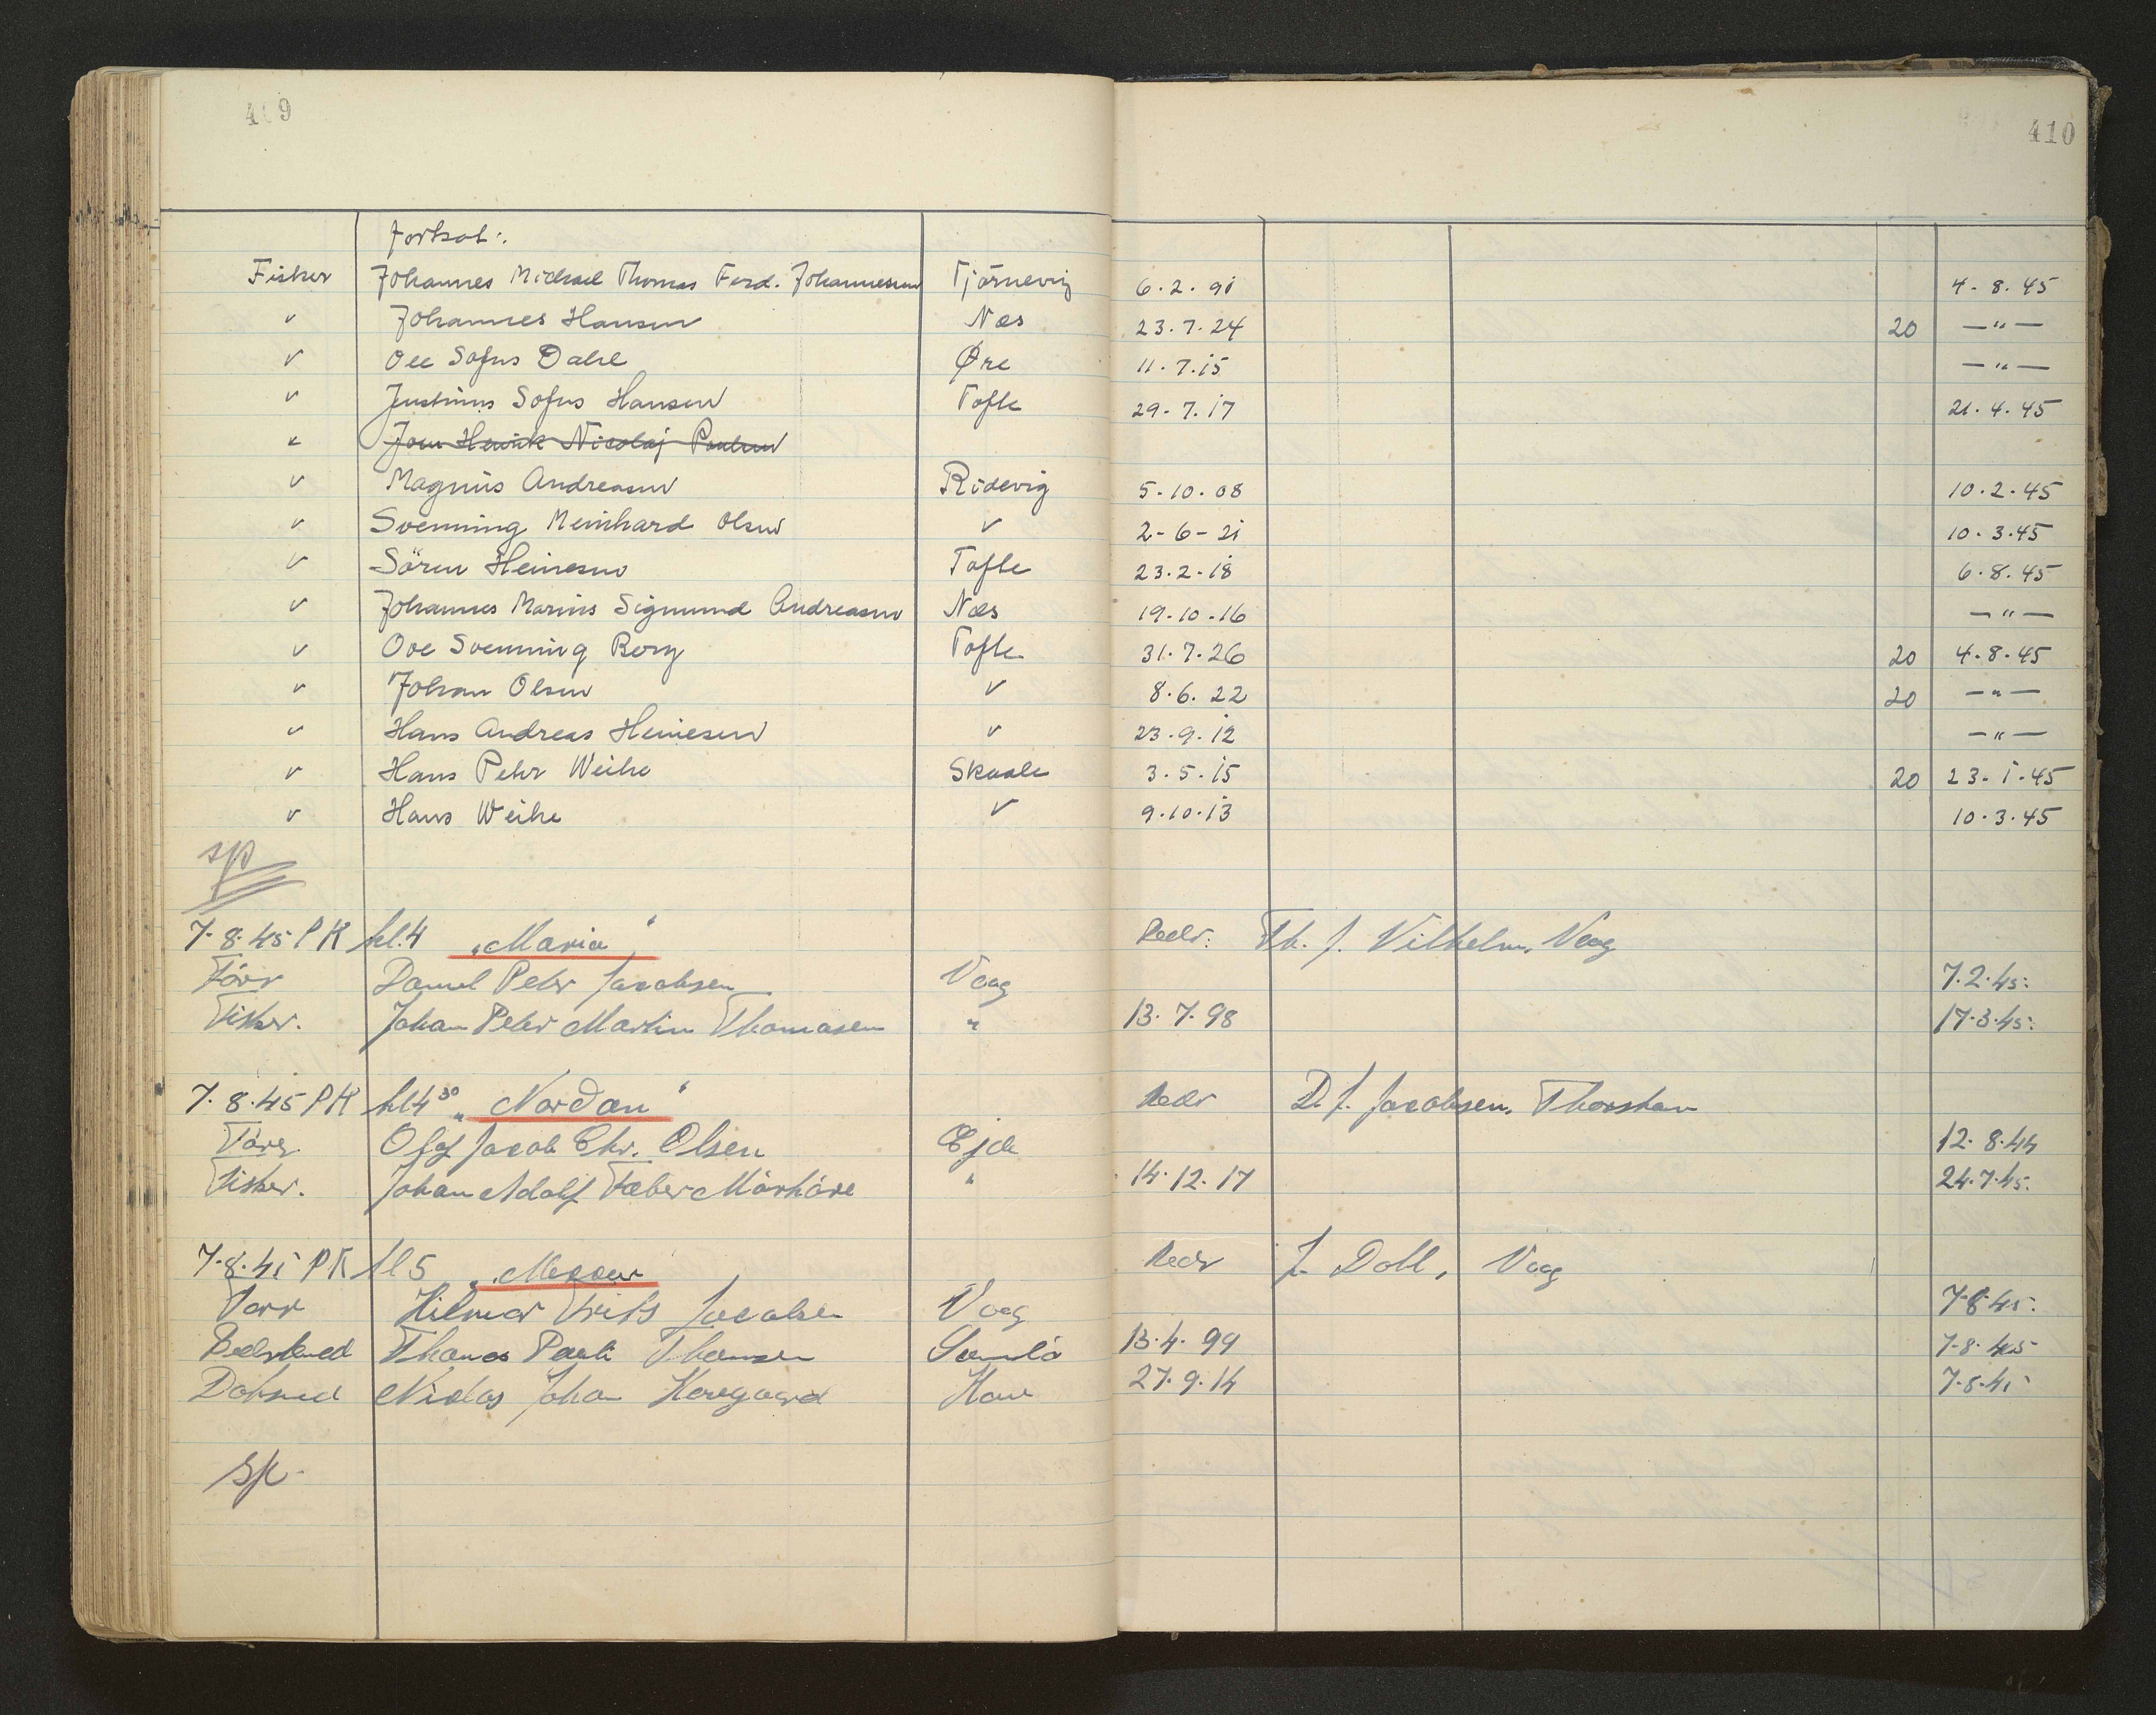 409
410
Fortsat:.
Fisker Johannes Michael Thomas Ferd. Johannesen Tjörnevig 6.2.91 4.8.45
v Johannes Hansen Næs 23.7.24 20 —"—
v Ole Sofus Dahl Øre 11.7.15 —"—
v Justinus Sofus Hansen Tofte 29.7.17 21.4.45
" Joen Henrik Nicolaj Poulsen
v Magnus Andreasen Ridevig 5.10.08 10.2.45
v Svenning Meinhard Olsen v 2-6-21 10.3.45
v Sören Heinesen Tofte 23.2.18 6.8.45
v Johannes Marius Sigmund Andreasen Næs 19.10.16 —"—
v Ove Svenning Berg Tofte 31.7.26 20 4.8.45
v Johan Olsen v 8.6.22 20 —"—
v Hans Andreas Heinesen v 23.9.12 —"—
v Hans Peter Weihe Skaale 3.5.15 20 23.1.45
v Hans Weihe v 9.10.13 10.3.45
sp
7.8.45 PK kl.4 „Maria" Redr: Th. J. Vilhelm, Vaag
Förr Daniel Peter Jacobsen Vaag 7.2.45.
Fisker. Johan Peter Martin Thomasen " 13.7.98 17.3.45.
7.8.45 PK kl 4³⁰ „Nordan" Redr D. J. Jacobsen, Thorshavn
Förr Olaf Jacob Chr. Olsen Ejde 12.8.44
Fisker. Johan Adolf Færber Mörköre " 14.12.17 24.7.45.
7.8.45 PK kl 5 Redr J. Dahl, Vaag
Förr Hilmar Frits Jacobsen Vaag 7.8.45.
Bedstmd Thomas Pauli Thomsen 13.4.99 7.8.45
Nicolas Johan 27.9.14 7.8.45
sp.